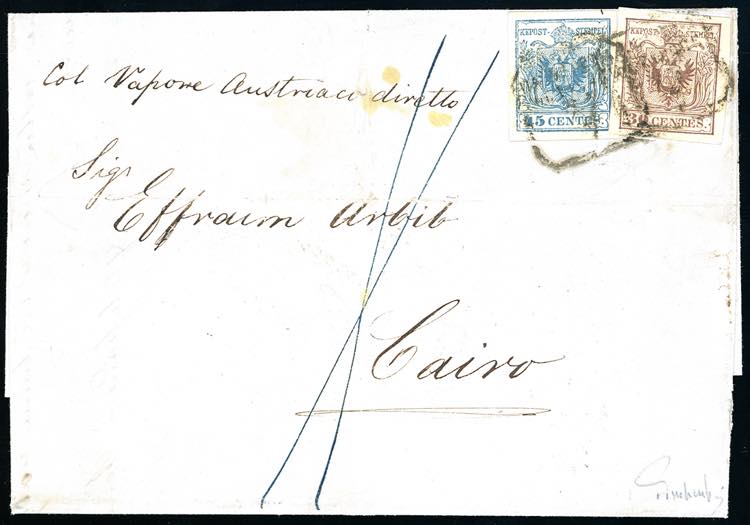 KKPOST-STEMPEL KKPOST-STEMPEL
45 CENTES. 30 CENTES.
Col Vapore Austriaco diretto
Sigr
Effraim Arbib
Cairo